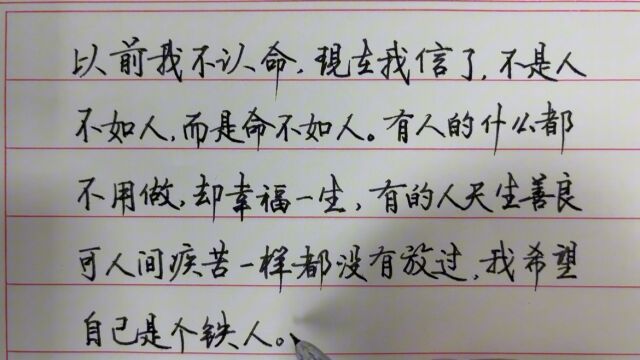 以前我不认命，现在我信了，不是人
不如人，而是命不如人。有人的什么都
不用做，却幸福一生，有的人天生善良
可人间疾苦一样都没有放过，我希望
自己是个铁人。